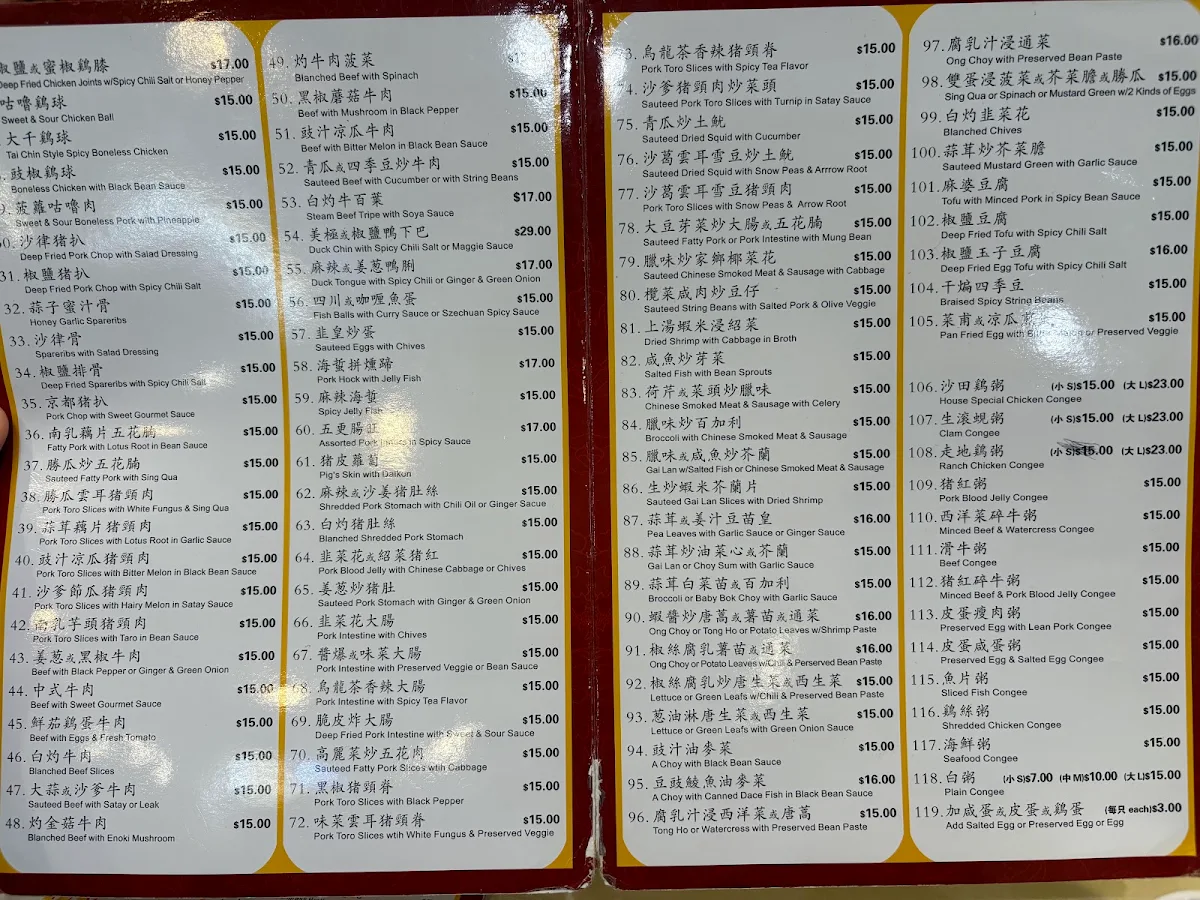 椒鹽或蜜椒鷄膝 $17.00
Deep Fried Chicken Joints w/Spicy Chili Salt or Honey Pepper
咕嚕鷄球 $15.00
Sweet & Sour Chicken Ball
大千鷄球 $15.00
Tai Chin Style Spicy Boneless Chicken
豉椒鷄球 $15.00
Boneless Chicken with Black Bean Sauce
9. 菠蘿咕嚕肉 $15.00
Sweet & Sour Boneless Pork with Pineapple
30. 沙律猪扒 $15.00
Deep Fried Pork Chop with Salad Dressing
31. 椒鹽猪扒 $15.00
Deep Fried Pork Chop with Spicy Chili Salt
32. 蒜子蜜汁骨 $15.00
Honey Garlic Spareribs
33. 沙律骨 $15.00
Spareribs with Salad Dressing
34. 椒鹽排骨 $15.00
Deep Fried Spareribs with Spicy Chili Salt
35. 京都猪扒 $15.00
Pork Chop with Sweet Gourmet Sauce
36. 南乳藕片五花腩 $15.00
Fatty Pork with Lotus Root in Bean Sauce
37. 勝瓜炒五花腩 $15.00
Sauteed Fatty Pork with Sing Qua
38. 勝瓜雲耳猪頸肉 $15.00
Pork Toro Slices with White Fungus & Sing Qua
39. 蒜茸藕片猪頸肉 $15.00
Pork Toro Slices with Lotus Root in Garlic Sauce
40. 豉汁凉瓜猪頸肉 $15.00
Pork Toro Slices with Bitter Melon in Black Bean Sauce
41. 沙爹節瓜猪頸肉 $15.00
Pork Toro Slices with Hairy Melon in Satay Sauce
42. 南乳芋頭猪頸肉 $15.00
Pork Toro Slices with Taro in Bean Sauce
43. 姜葱或黑椒牛肉 $15.00
Beef with Black Pepper or Ginger & Green Onion
44. 中式牛肉 $15.00
Beef with Sweet Gourmet Sauce
45. 鮮茄鷄蛋牛肉 $15.00
Beef with Eggs & Fresh Tomato
46. 白灼牛肉 $15.00
Blanched Beef Slices
47. 大蒜或沙爹牛肉 $15.00
Sauteed Beef with Satay or Leak
48. 灼金菇牛肉 $15.00
Blanched Beef with Enoki Mushroom
49. 灼牛肉菠菜
Blanched Beef with Spinach
50. 黑椒蘑菇牛肉 $15.00
Beef with Mushroom in Black Pepper
51. 豉汁凉瓜牛肉 $15.00
Beef with Bitter Melon in Black Bean Sauce
52. 青瓜或四季豆炒牛肉 $15.00
Sauteed Beef with Cucumber or with String Beans
53. 白灼牛百葉 $17.00
Steam Beef Tripe with Soya Sauce
54. 美極或椒鹽鴨下巴 $29.00
Duck Chin with Spicy Chili Salt or Maggie Sauce
55. 麻辣或姜葱鴨脷 $17.00
Duck Tongue with Spicy Chili or Ginger & Green Onion
56. 四川或咖喱魚蛋 $15.00
Fish Balls with Curry Sauce or Szechuan Spicy Sauce
57. 韭皇炒蛋 $15.00
Sauteed Eggs with Chives
58. 海蜇拼燻蹄 $17.00
Pork Hock with Jelly Fish
59. 麻辣海蜇 $15.00
Spicy Jelly Fish
60. 五更腸旺 $17.00
Assorted Pork Innats in Spicy Sauce
61. 猪皮蘿蔔 $15.00
Pig's Skin with Daikun
62. 麻辣或沙姜猪肚絲 $15.00
Shredded Pork Stomach with Chili Oil or Ginger Sacue
63. 白灼猪肚絲 $15.00
Blanched Shredded Pork Stomach
64. 韭菜花或紹菜猪紅 $15.00
Pork Blood Jelly with Chinese Cabbage or Chives
65. 姜葱炒猪肚 $15.00
Sauteed Pork Stomach with Ginger & Green Onion
66. 韭菜花大腸 $15.00
Pork Intestine with Chives
67. 醬爆或味菜大腸 $15.00
Pork Intestine with Preserved Veggie or Bean Sauce
68. 烏龍茶香辣大腸 $15.00
Pork Intestine with Spicy Tea Flavor
69. 脆皮炸大腸 $15.00
Deep Fried Pork Intestine with Sweet & Sour Sauce
70. 高麗菜炒五花肉 $15.00
Sauteed Fatty Pork Slices with Cabbage
71. 黑椒猪頸脊 $15.00
Pork Toro Slices with Black Pepper
72. 味菜雲耳猪頸脊 $15.00
Pork Toro Slices with White Fungus & Preserved Veggie
73. 烏龍茶香辣猪頸脊 $15.00
Pork Toro Slices with Spicy Tea Flavor
74. 沙爹猪頸肉炒菜頭 $15.00
Sauteed Pork Toro Slices with Turnip in Satay Sauce
75. 青瓜炒土魷 $15.00
Sauteed Dried Squid with Cucumber
76. 沙葛雲耳雪豆炒土魷 $15.00
Sauteed Dried Squid with Snow Peas & Arrrow Root
77. 沙葛雲耳雪豆猪頸肉 $15.00
Pork Toro Slices with Snow Peas & Arrow Root
78. 大豆芽菜炒大腸或五花腩 $15.00
Sauteed Fatty Pork or Pork Intestine with Mung Bean
79. 臘味炒家鄉椰菜花 $15.00
Sauteed Chinese Smoked Meat & Sausage with Cabbage
80. 欖菜咸肉炒豆仔 $15.00
Sauteed String Beans with Salted Pork & Olive Veggie
81. 上湯蝦米浸紹菜 $15.00
Dried Shrimp with Cabbage in Broth
82. 咸魚炒芽菜 $15.00
Salted Fish with Bean Sprouts
83. 荷芹或菜頭炒臘味 $15.00
Chinese Smoked Meat & Sausage with Celery
84. 臘味炒百加利 $15.00
Broccoli with Chinese Smoked Meat & Sausage
85. 臘味或咸魚炒芥蘭 $15.00
Gai Lan w/Salted Fish or Chinese Smoked Meat & Sausage
86. 生炒蝦米芥蘭片 $15.00
Sauteed Gai Lan Slices with Dried Shrimp
87. 蒜茸或姜汁豆苗皇 $16.00
Pea Leaves with Garlic Sauce or Ginger Sauce
88. 蒜茸炒油菜心或芥蘭 $15.00
Gai Lan or Choy Sum with Garlic Sauce
89. 蒜茸白菜苗或百加利 $15.00
Broccoli or Baby Bok Choy with Garlic Sauce
90. 蝦醬炒唐蒿或薯苗或通菜 $16.00
Ong Choy or Tong Ho or Potato Leaves w/Shrimp Paste
91. 椒絲腐乳薯苗或通菜 $16.00
Ong Choy or Potato Leaves w/Chili & Perserved Bean Paste
92. 椒絲腐乳炒唐生菜或西生菜 $15.00
Lettuce or Green Leafs w/Chili & Preserved Bean Paste
93. 葱油淋唐生菜或西生菜 $15.00
Lettuce or Green Leafs with Green Onion Sauce
94. 豉汁油麥菜 $15.00
A Choy with Black Bean Sauce
95. 豆豉鯪魚油麥菜 $16.00
A Choy with Canned Dace Fish in Black Bean Sauce
96. 腐乳汁浸西洋菜或唐蒿 $15.00
Tong Ho or Watercress with Preserved Bean Paste
97. 腐乳汁浸通菜 $16.00
Ong Choy with Preserved Bean Paste
98. 雙蛋浸菠菜或芥菜膽或勝瓜 $15.00
Sing Qua or Spinach or Mustard Green w/2 Kinds of Eggs
99. 白灼韭菜花 $15.00
Blanched Chives
100. 蒜茸炒芥菜膽 $15.00
Sauteed Mustard Green with Garlic Sauce
101. 麻婆豆腐 $15.00
Tofu with Minced Pork in Spicy Bean Sauce
102. 椒鹽豆腐 $15.00
Deep Fried Tofu with Spicy Chili Salt
103. 椒鹽玉子豆腐 $16.00
Deep Fried Egg Tofu with Spicy Chili Salt
104. 干煸四季豆 $15.00
Braised Spicy String Beans
105. 菜甫或凉瓜煎 $15.00
Pan Fried Egg with Bitter Melon or Preserved Veggie
106. 沙田鷄粥 (小 S)$15.00 (大 L)$23.00
House Special Chicken Congee
107. 生滚蜆粥 (小 S)$15.00 (大 L)$23.00
Clam Congee
108. 走地鷄粥 (小 S)$15.00 (大 L)$23.00
Ranch Chicken Congee
109. 猪紅粥 $15.00
Pork Blood Jelly Congee
110. 西洋菜碎牛粥 $15.00
Minced Beef & Watercress Congee
111. 滑牛粥 $15.00
Beef Congee
112. 猪紅碎牛粥 $15.00
Minced Beef & Pork Blood Jelly Congee
113. 皮蛋瘦肉粥 $15.00
Preserved Egg with Lean Pork Congee
114. 皮蛋咸蛋粥 $15.00
Preserved Egg & Salted Egg Congee
115. 魚片粥 $15.00
Sliced Fish Congee
116. 鷄絲粥 $15.00
Shredded Chicken Congee
117. 海鮮粥 $15.00
Seafood Congee
118. 白粥 (小 S)$7.00 (中 M)$10.00 (大 L)$15.00
Plain Congee
119. 加咸蛋或皮蛋或鷄蛋 (每只 each)$3.00
Add Salted Egg or Preserved Egg or Egg